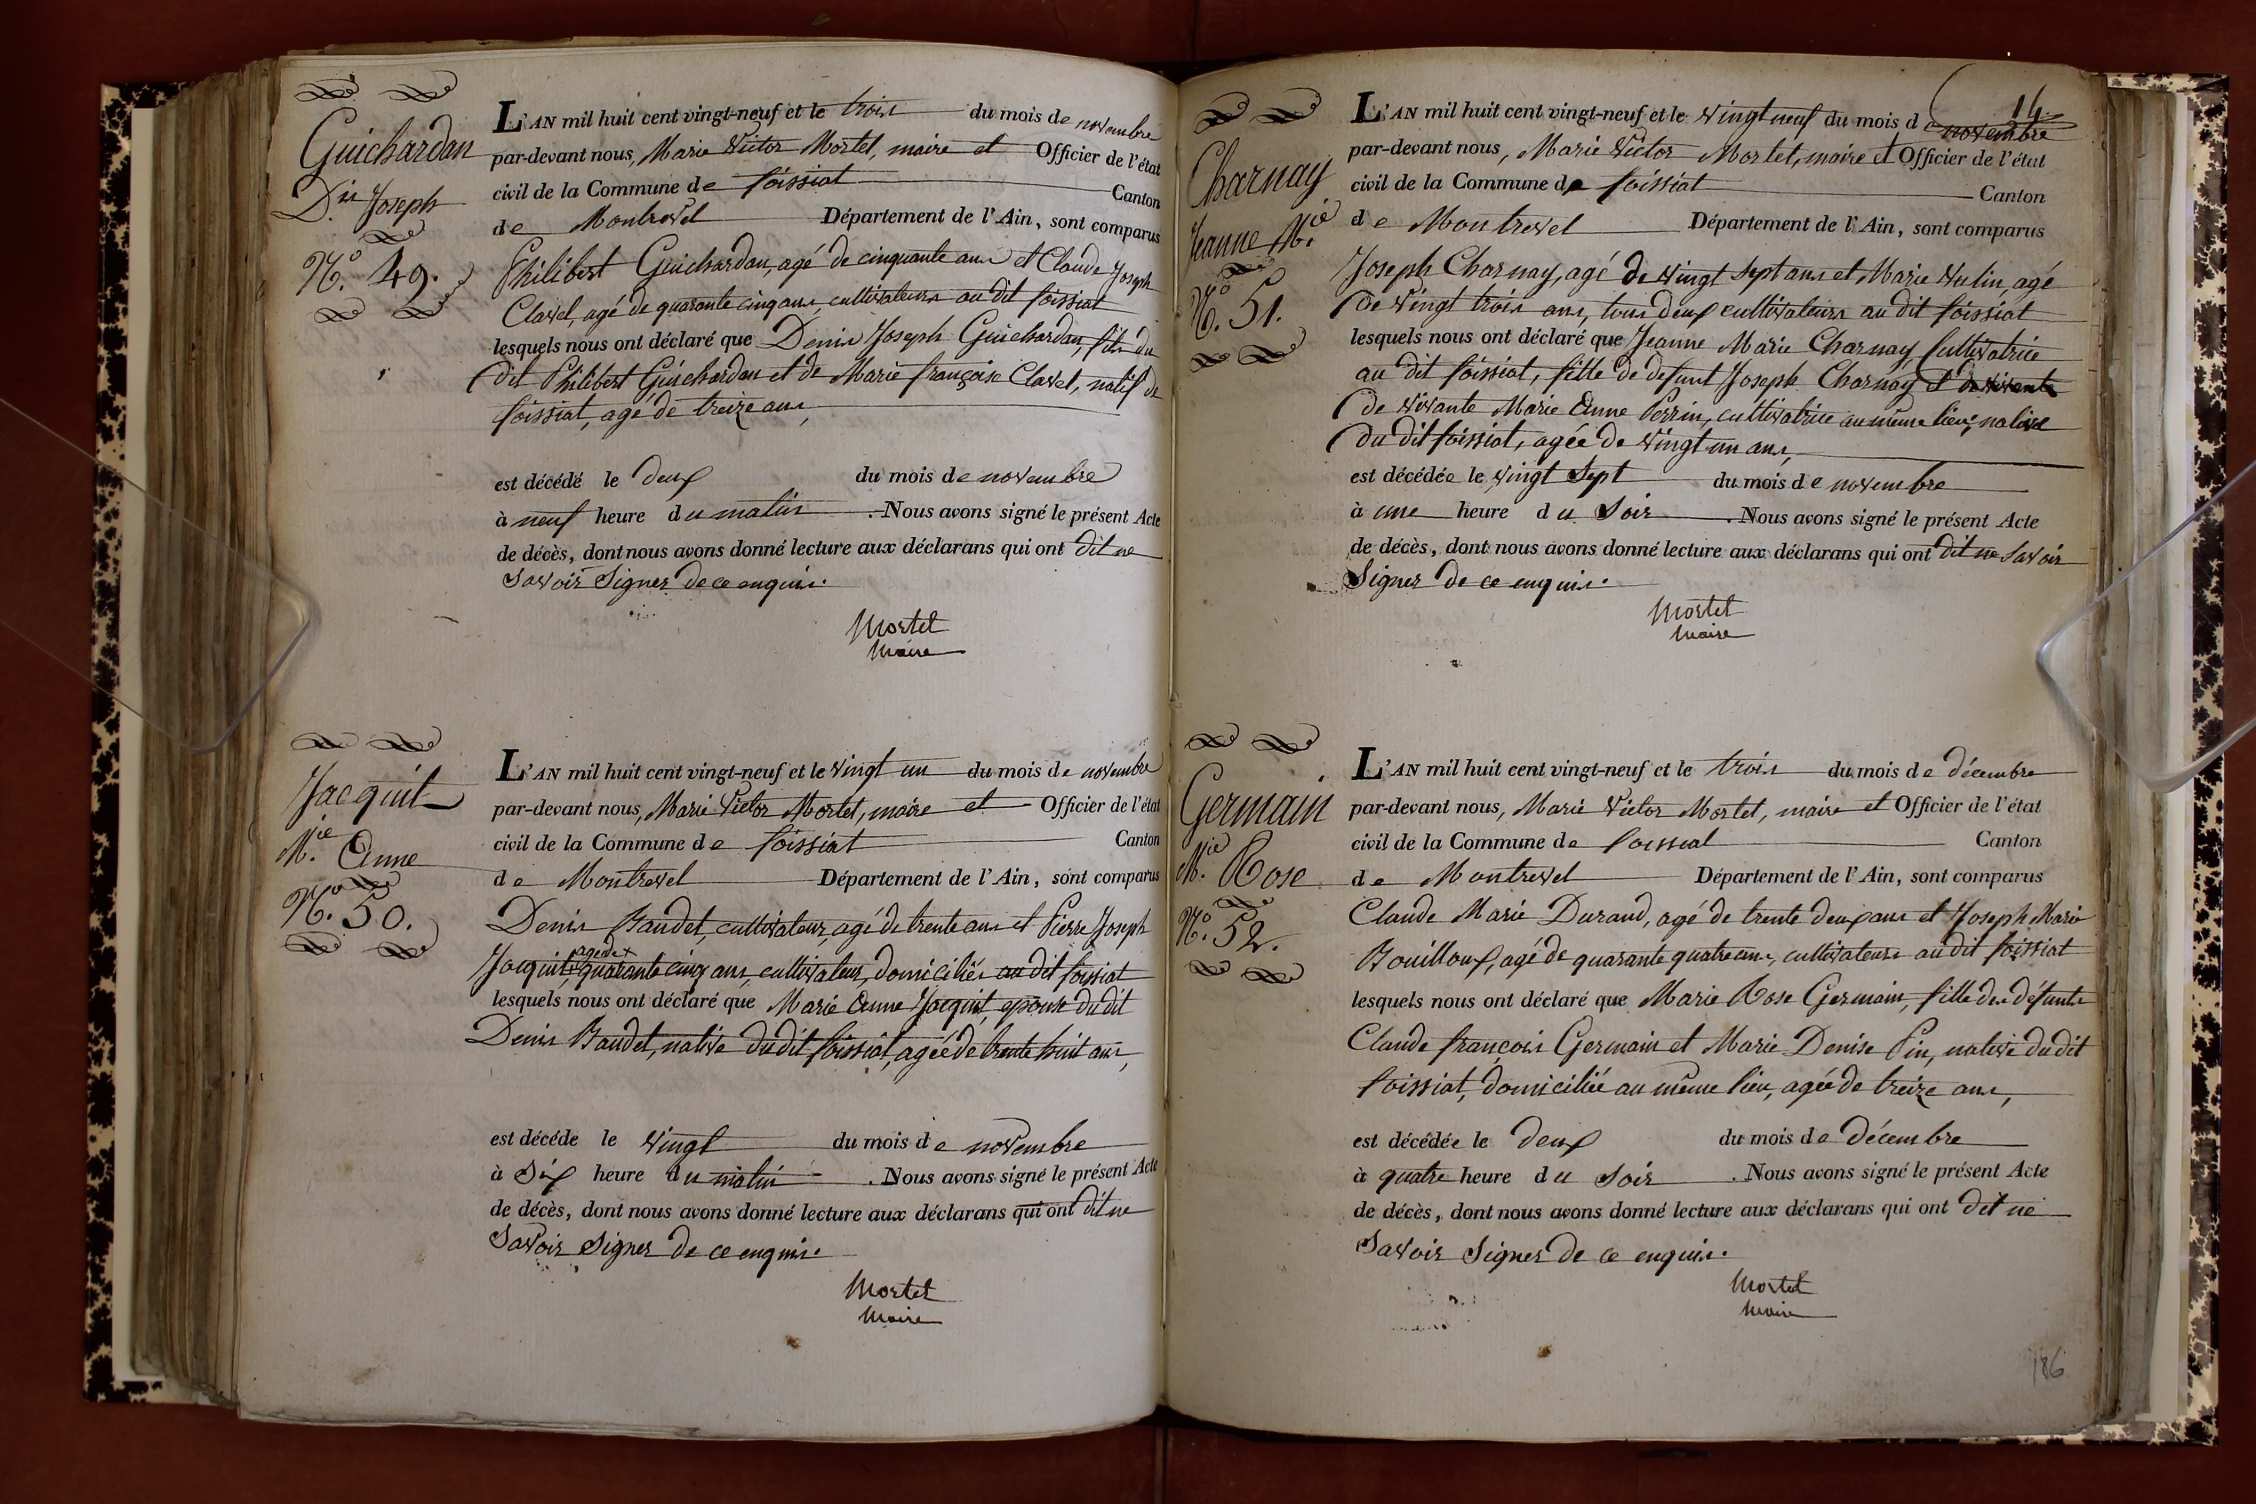 Guichardan
Dis Joseph
N.o 49.
L'AN mil huit cent vingt-neuf et le trois du mois de novembre
par-devant nous, Marie Victor Mortel, maire et Officier de l'état
civil de la Commune de foissiat Canton
de Montrevel Département de l'Ain, sont comparus
Philibert Guichardan, agé de cinquante ans et Claude Joseph
Clavel, agé de quarante cinq ans, cultivateurs au dit foissiat
lesquels nous ont déclaré que Denis Joseph Guichardan, fils du
dit Philibert Guichardan et de Marie françoise Clavel, natif de
foissiat, agé de treize ans,
est décédé le deux du mois de novembre
à neuf heure du matin . Nous avons signé le présent Acte
de décès, dont nous avons donné lecture aux déclarans qui ont dit ne
Savoir Signer de ce enquis.
Mortel
Maire
Jacquit
M.ie Anne
N.o 50.
L'AN mil huit cent vingt-neuf et le vingt un du mois de novembre
par-devant nous, Marie Victor Mortel, maire et Officier de l'état
civil de la Commune de foissiat Canton
de Montrevel Département de l'Ain, sont comparus
Denis Baudet, cultivateur, agé de trente ans et Pierre Joseph
agé de
Jacquit, quarante cinq ans, cultivateur, domiciliés au dit foissiat
lesquels nous ont déclaré que Marie Anne Jacquit, epouse du dit
Denis Baudet, native du dit foissiat, agée de trente huit ans,
est décédé le vingt du mois de novembre
à Six heure du matin . Nous avons signé le présent Acte
de décès, dont nous avons donné lecture aux déclarans qui ont dit ne
Savoir Signer de ce enquis.
Mortel
Maire
14
Charnay
Jeanne M.ie
N.o 51.
L'AN mil huit cent vingt-neuf et le vingt neuf du mois de novembre
par-devant nous, Marie Victor Mortel, maire et Officier de l'état
civil de la Commune de foissiat Canton
de Montrevel Département de l'Ain, sont comparus
Joseph Charnay, agé de vingt Sept ans et Marie Vulin, agé
de vingt trois ans, tous deux cultivateurs au dit foissiat
lesquels nous ont déclaré que Jeanne Marie Charnay Cultivatrice
au dit foissiat, fille de defunt Joseph Charnay et de vivante
de vivante Marie Anne Perrin, cultivatrice au même lieu, native
du dit foissiat, agée de vingt un ans,
est décédée le vingt Sept du mois de novembre
à une heure du Soir . Nous avons signé le présent Acte
de décès, dont nous avons donné lecture aux déclarans qui ont dit ne Savoir
Signer de ce enquis.
Mortel
Maire
Germain
M.ie Rose
N.o 52.
L'AN mil huit cent vingt-neuf et le trois du mois de décembre
par-devant nous, Marie Victor Mortel, maire et Officier de l'état
civil de la Commune de foissiat Canton
de Montrevel Département de l'Ain, sont comparus
Claude Marie Durand, agé de trente deux ans et Joseph Marie
Bouilloux, agé de quarante quatre ans, cultivateurs au dit foissiat
lesquels nous ont déclaré que Marie Rose Germain, fille des défunts
Claude françois Germain et Marie Denise Pin, native du dit
foissiat, domiciliée au même lieu, agée de treize ans,
est décédée le deux du mois de décembre
à quatre heure du Soir . Nous avons signé le présent Acte
de décès, dont nous avons donné lecture aux déclarans qui ont dit ne
Savoir Signer de ce enquis.
Mortel
Maire
186